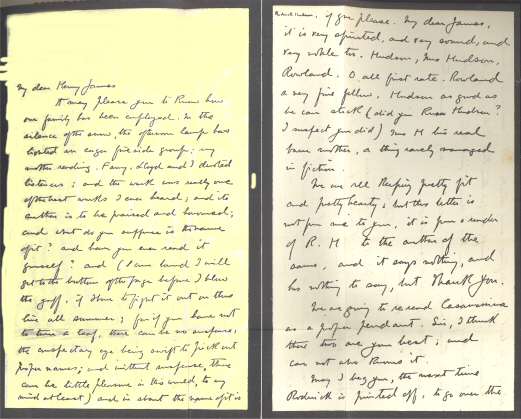 My dear Henry James
It may please you to know how
our family has been employed. In the
silence of the snow, the afternoon lamp has
lighted an eager fireside group: my
mother reading, Fanny, Lloyd and I devoted
listeners; and the work was really one
of the best works I ever heard; and its
author is to be praised and honoured;
and what do you suppose is the name
of it? and have you ever read it
yourself? and (I am bound I will
get to the bottom of the page before I blow
the gaff, if I have to fight it out on this
line all summer; for if you have not
to turn a leaf, there can be no suspense,
the conspectory eye being swift to pick out
proper names; and without suspense, there
can be little pleasure in this world, to my
mind at least) and in about the name of it is
Roderick Hudson, if you please. My dear James,
it is very spirited, and very sound, and
very noble too. Hudson, Mrs Hudson,
Rowland, O, all first rate: Rowland
a very fine fellow, Hudson as good as
he can stick (did you know Hudson?
I suspect you did) Mrs H his real
born mother, a thing rarely managed
in fiction.
We are all keeping pretty fit
and pretty hearty, but this letter is
not from me to you, it is from a reader
of R. H. to the author of the
same, and it says nothing, and
has nothing to say, but Thank You.
We are going to reread Casamassima
as a proper pendant. Sir, I think
these two are your best; and
care not who knows it.
May I beg you, the next time
Roderick is printed off, to go over the